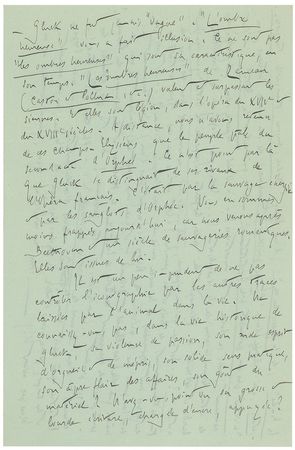 Gluck ne fut jamais "vague". "L'ombre
heureuse" vous a fait illusion. Ce ne sont pas
"les ombres heureuses" qui sont sa caractéristique, en
son temps. "Les ombres heureuses" de Rameau
(Castor et Pollux, etc.) valent et surpassent les
siennes. Et elles sont légion, dans l'opéra du XVIIe et
du XVIIIe siècles. A distance, nous n'avons retenu
de ces champs Elyséens que le peuple pâle du
second acte d'Orphée. Ce n'est point par là
que Gluck se distinguait de ses rivaux de
l'Opéra français. C'était par la sauvage énergie
par les sanglots d'Orphée. Vous en sommes
moins frappés aujourd'hui, car nous venons après
Beethoven et un siècle de sauvageries romantiques.
Elles sont issues de lui.
Il est un peu imprudent de ne pas
contrôler l'iconographie par les autres traces
laissées par l'animal dans la vie. Ne
connaissez-vous pas, dans la vie historique de
Gluck, sa violence de passion, son rude esprit
d'orgueil et de mépris, son solide sens pratique,
son âpre flair des affaires, son goût du
matériel? N'avez-vous point vu sa grosse et
lourde écriture, chargée d'encre, appuyée?